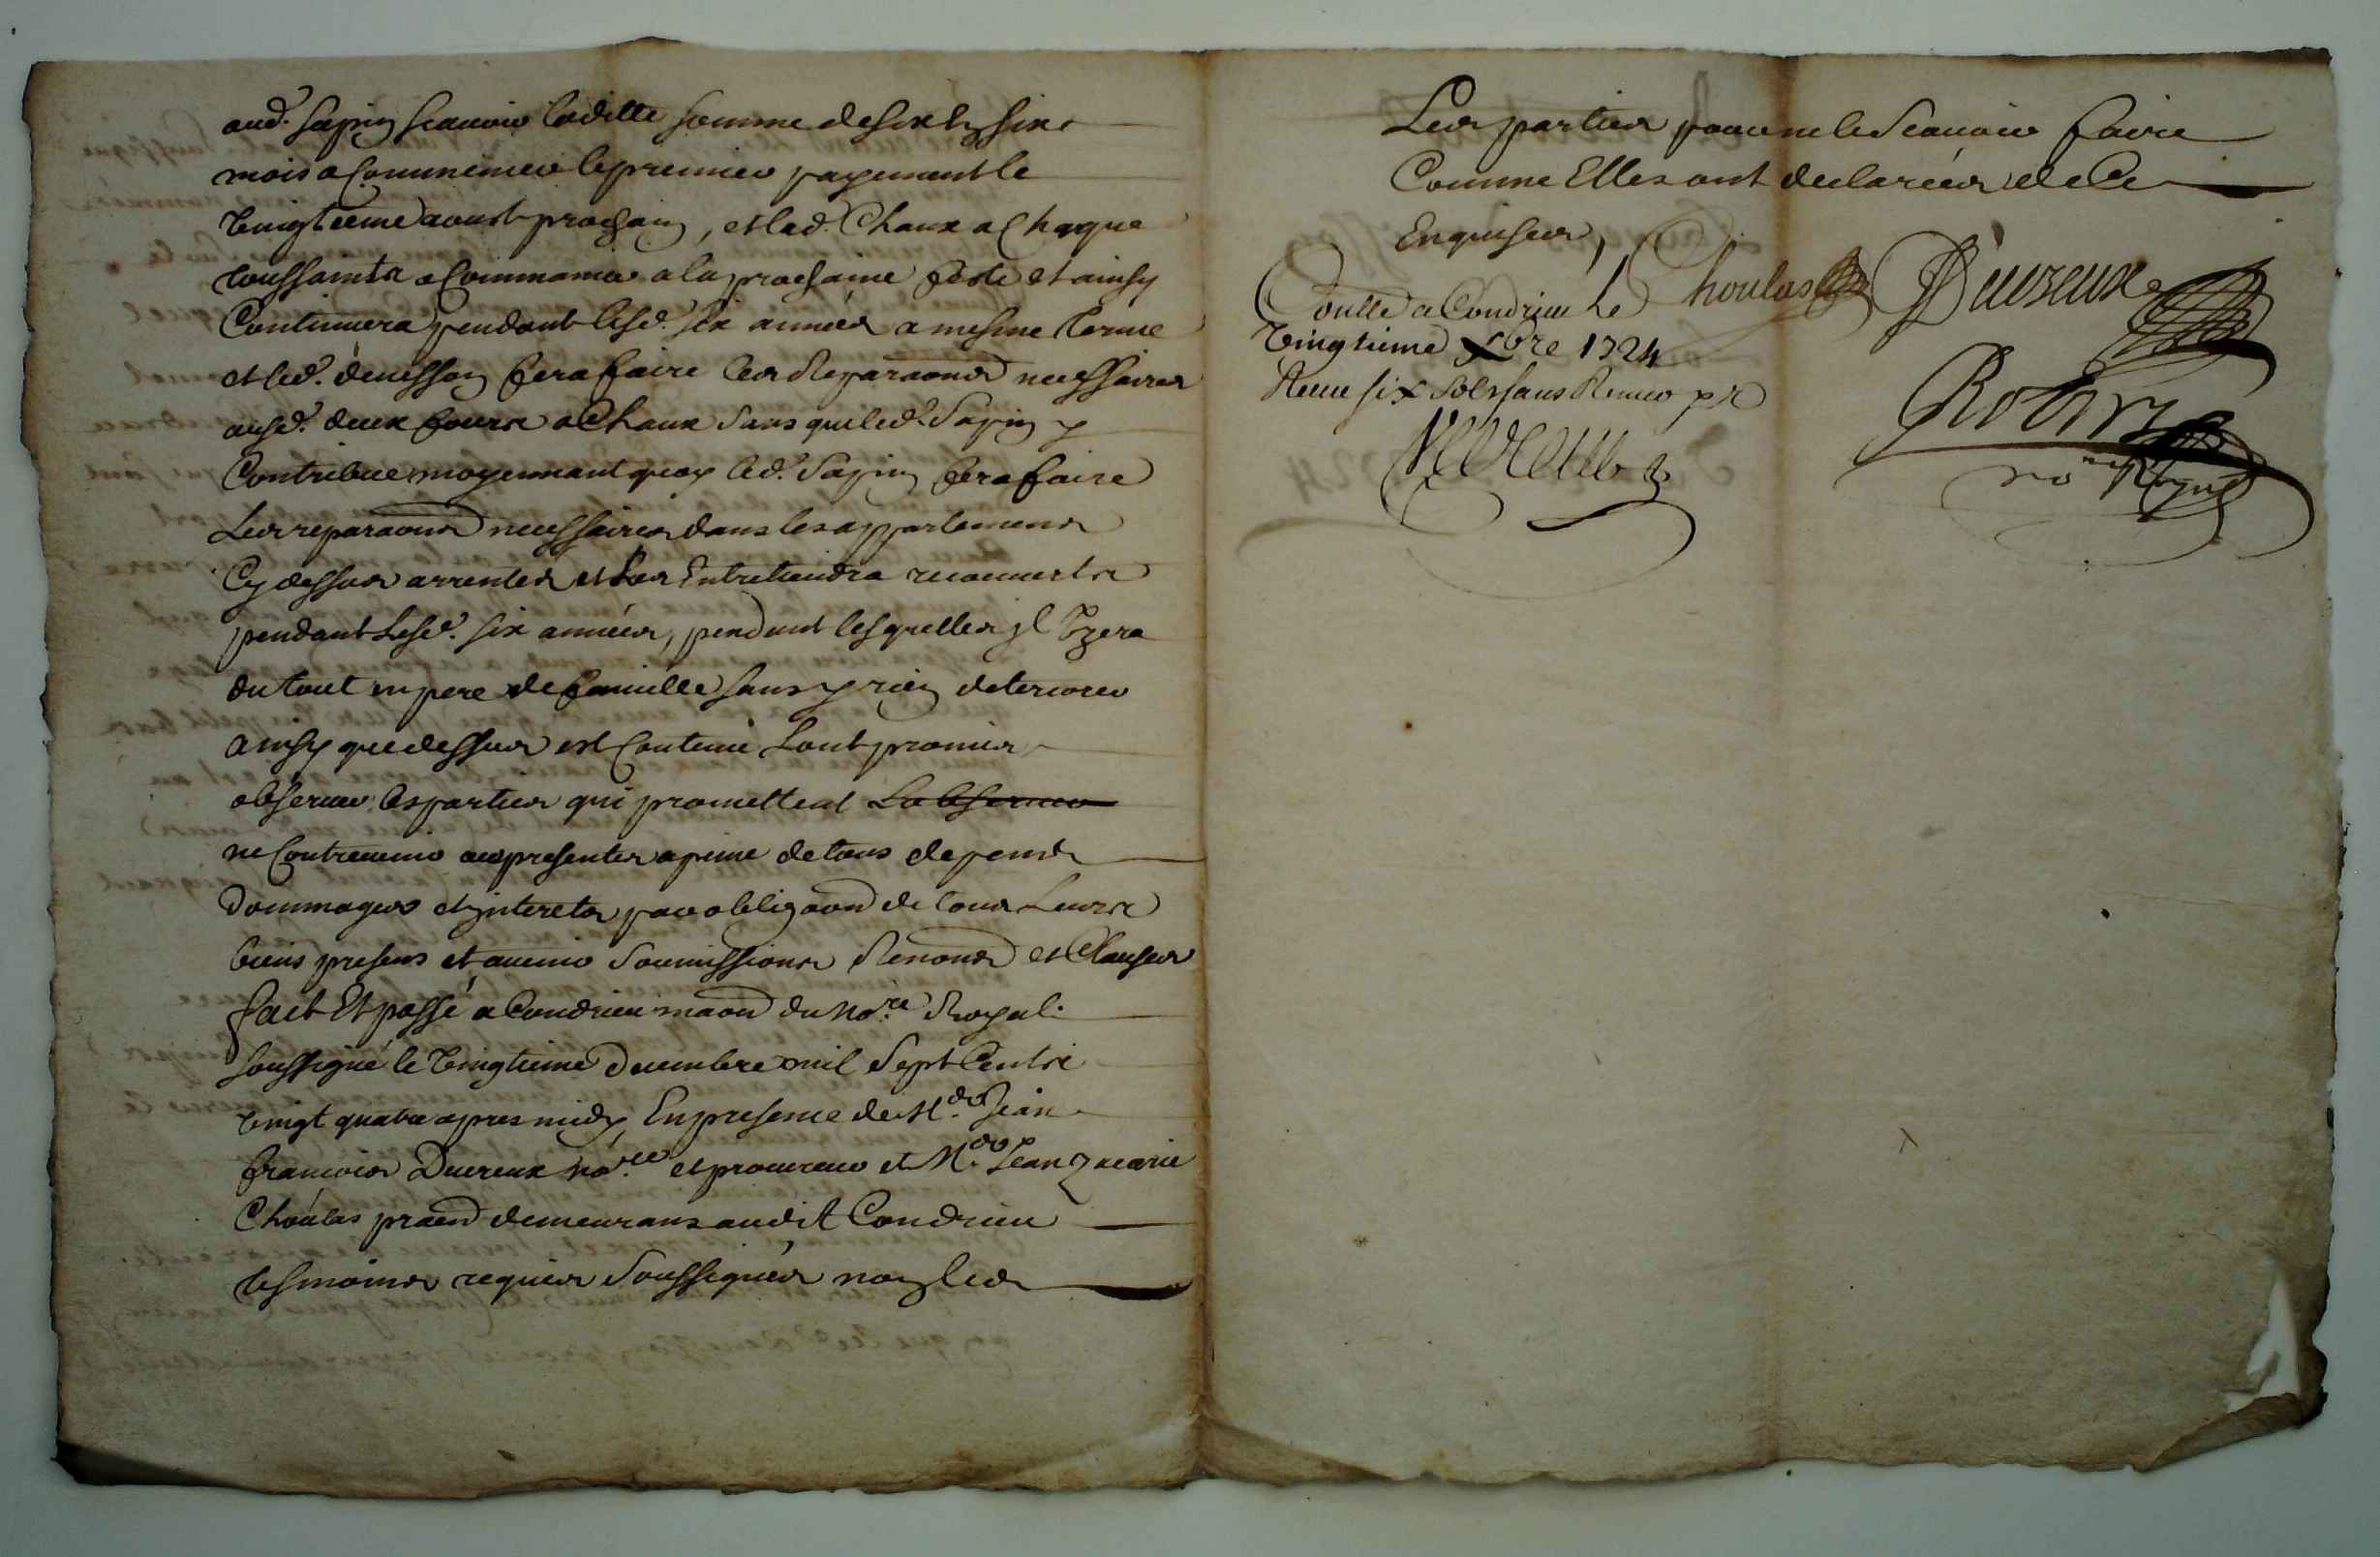 aud. Sapin scavoir laditte somme de six en six
mois a commencer le premier payement le
vingtieme aoust prochain, et lad. Chaux a chaque
toussaints a commancer a la prochaine feste et ainsy
Continuera pendant lesd. six années a mesme terme
et led. denesson fera faire les Reparaons necessaires
ausd. deux fours a Chaux sans que led. Sapin y
Contribue moyennant quoy led. Sapin fera faire
Les reparaons necessaires dans les appartemens
Cy dessus arrentés et Les Entretiendra recouverts
pendant Lesd. six années, pendant lesquelles jl Vzera
du tout en pere de famille sans y rien deteriorer
ainsy que dessus est Contenu Sont promis
observer les parties qui promettent Lobserver
ne Contrevenir aux presentes a peine de tous depens
Dommages et jnterets par obligaon de tous Leurs
biens presens et avenir Soumissions Renons et Clauses
fait Et passé a Condrieu maon du No.re Royal
soussigné le Vingtieme Decembre mil Sept Cents
vingt quatre apres midy En presence de M. Jean
francois Ducreux no.re et procureur et M. Jean
Choulas demeurans audit Condrieu
tesmoins requis Soussignés non les
Les parties pour ne le Scavoir faire
Comme Elles ont declarées de Ce
Enquises,
Choulas Ducreux
Coulle a Condrieu le
Vingtieme Xbre 1724
Receu six sols sans
Robin
no.re Royal